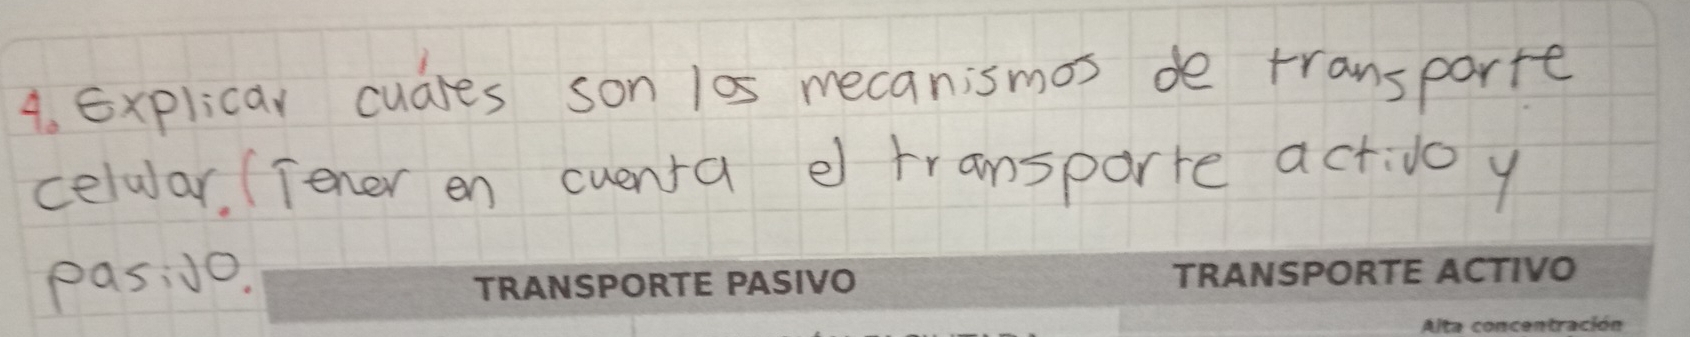 4. Explicar cuáles son los mecanismos de transporte
celular. (Tener en cuenta el transporte activo y
pasivo.
TRANSPORTE PASIVO
TRANSPORTE ACTIVO
Alta concentración